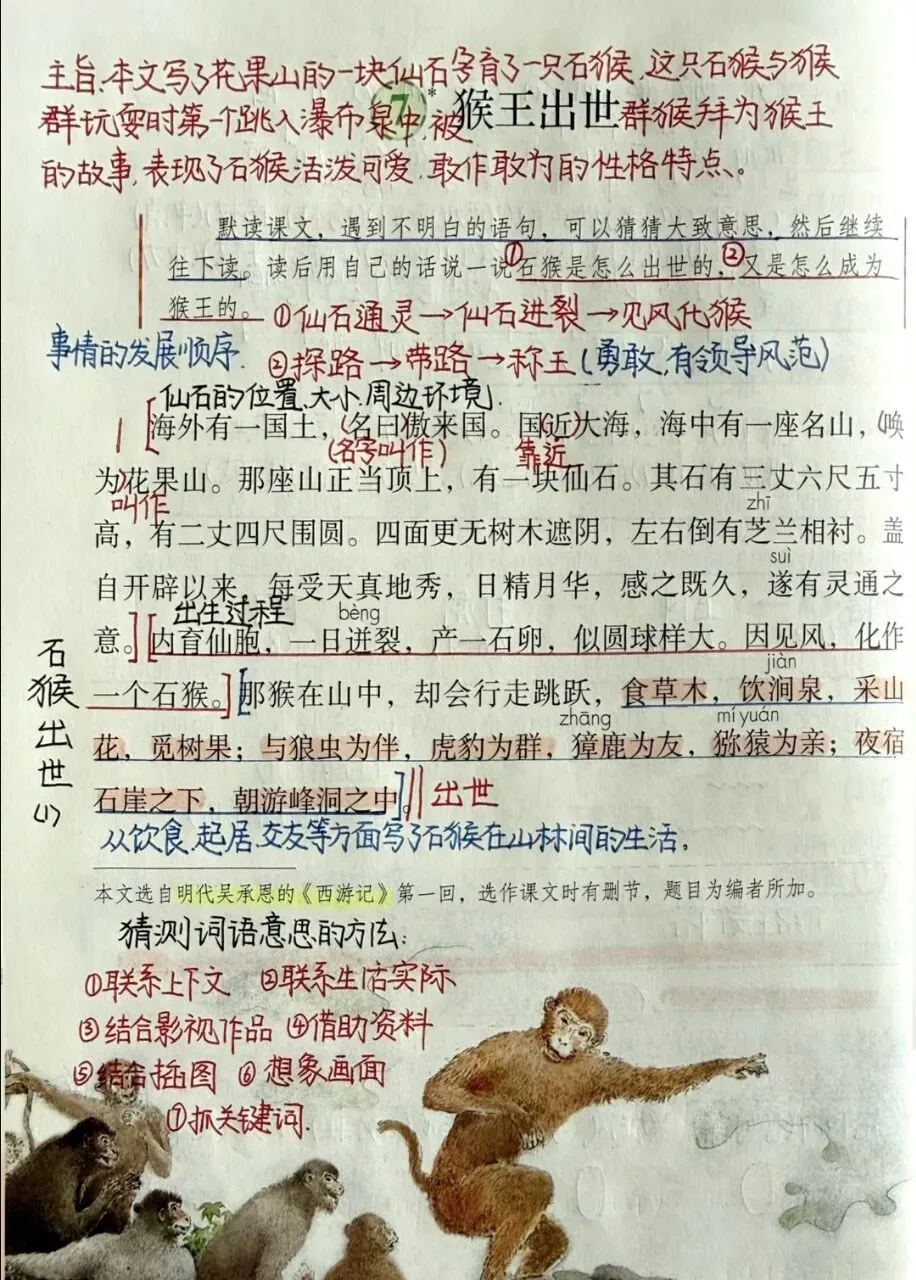 主旨:本文写了花果山的一块仙石孕育了一只石猴,这只石猴与猴
群玩耍时第一个跳入瀑布泉中,被群猴拜为猴王
的故事,表现了石猴活泼可爱,敢作敢为的性格特点。
7* 猴王出世
默读课文,遇到不明白的语句,可以猜猜大致意思,然后继续
往下读。读后用自己的话说一说①石猴是怎么出世的,②又是怎么成为
猴王的。
①仙石通灵→仙石迸裂→见风化猴
事情的发展顺序.
②探路→带路→称王(勇敢,有领导风范)
仙石的位置、大小、周边环境.
海外有一国土,(名曰)傲来国。国(近)大海,海中有一座名山,(唤
(名字叫作) 靠近
为)花果山。那座山正当顶上,有一块仙石。其石有三丈六尺五寸
叫作
zhī
高,有二丈四尺围圆。四面更无树木遮阴,左右倒有芝兰相衬。盖
suì
自开辟以来,每受天真地秀,日精月华,感之既久,遂有灵通之
出生过程
bèng
意。][内育仙胞,一日迸裂,产一石卵,似圆球样大。因见风,化作
jiàn
一个石猴。][那猴在山中,却会行走跳跃,食草木,饮涧泉,采山
zhāng mí yuán
花,觅树果;与狼虫为伴,虎豹为群,獐鹿为友,猕猿为亲;夜宿
石崖之下,朝游峰洞之中。]‖出世
石猴出世(1)
从饮食,起居,交友等方面写了石猴在山林间的生活,
本文选自明代吴承恩的《西游记》第一回,选作课文时有删节,题目为编者所加。
猜测词语意思的方法:
①联系上下文 ②联系生活实际
③结合影视作品 ④借助资料
⑤结合插图 ⑥想象画面
⑦抓关键词.